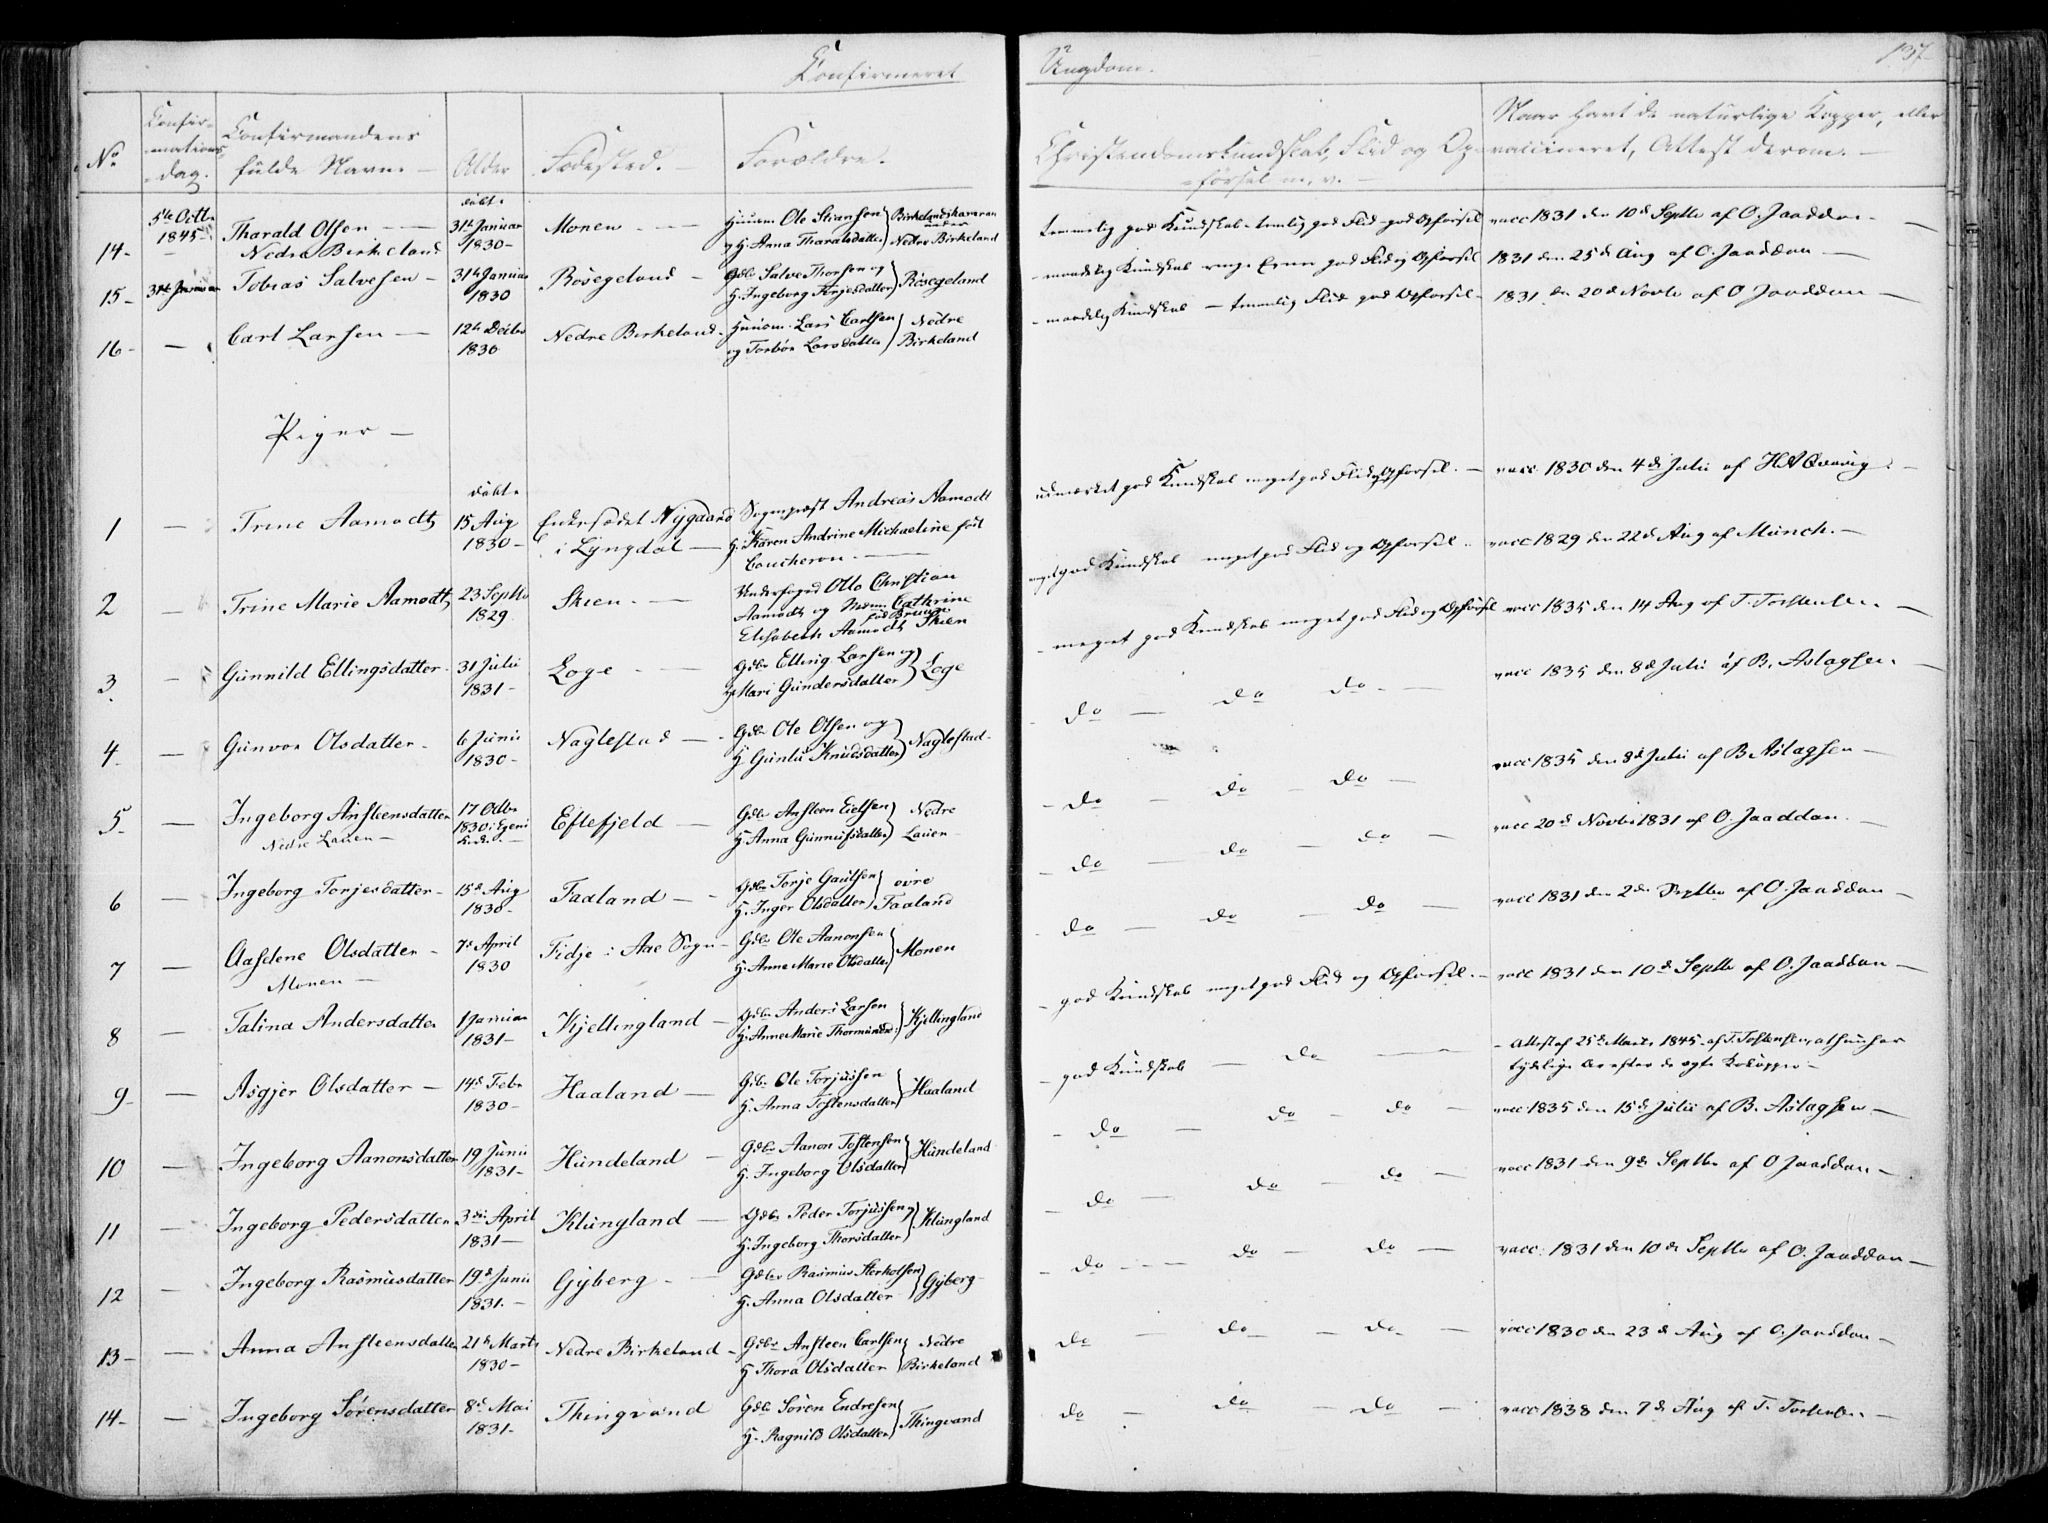 Confirmeret Ungdom. 137
No
Confirmations dag.
Confirmandens fulde Navn. —
Alder
Fødested. —
Forældre.
Christendomskundskab, Flid og Opførsel m. v. —
Naar havt de naturlige Kopper, eller vaccineret, Attest derom. —
14- 5te Octbr 1845- Tharald Olsen — Nedre Birkeland døbt 31te Januar 1830- Monen — Ole Stiansen og H. Anna Tharalsdatter Nedre Birkeland temmelig god Kundskab temlig god Flid god Opførsel vacc 1831 den 10de Septbr af O. Jaaddan. —
15- Tobias Salvesen - 31te Januar 1830 Røsegeland - Gdbr Salve Thorsen og H. Ingeborg Torjesdatter Røsegeland maadelig Kundskab god Flid og Opførsel 1831 den 25de Aug af O. Jaaddan —
16- — Carl Larsen — 12te Decbr 1830 Nedre Birkeland. Huusm. Lars Carlsen og Torbør Larsdatter Nedre Birkeland maadelig Kundskab — temmelig Flid god Opførsel - 1831 den 20de Novbr af O Jaaddan —
Piger —
1 — Trine Aamodt døbt 15 Aug 1830 - Enkesædet Nygaard i Lyngdal — Sognepræst Andreas Aamodt H. Karen Andrine Michaeline født Coucheron. — udmærket god Kundskab meget god Flid og Opførsel. — vacc. 1830 den 4de Julii af
2 — Trine Marie Aamodt 23 Septbr 1829 Skien. — Underfoged Otto Christian Aamodt og Mdm Cathrine Elisabeth Aamodt fød Bruun Skien god Kundskab meget god Flid og Opførsel. vacc 1829 den 22de Aug af Münch. —
3 — Gunnild Ellingsdatter 31 Julii 1831- Loge — Gdbr Elling Larsen og H. Mari Gundersdatter Loge - meget god Kundskab meget god Flid og Opførsel vacc 1835 den 14 Aug af T. Tostensen. —
4 — Gunvor Olsdatter. 6 Junii 1830- Naglestad — Gdbr Ole Olsen og H. Gunlu Knudsdatter Naglestad - do — do do. — vacc 1835 den 8de Julii af B. Aslagsen. —
5- — Ingeborg Ansteensdatter Nedre Lauen — 17 Octbr 1830 i Egeni Kirke. Eftefjeld — Gdbr Ansteen Eielsen H. Anna Gunnufsdatter Nedre Lauen - - do — do — do — vacc 1835 den 8de Julii af B Aslagsen —
6 — Ingeborg Torjesdatter - 15de Aug 1830- Faaland — Gdbr Torje Gaulsen H. Inger Olsdatter øvre Faaland - do — do — do — vacc 20de Novbr 1831 af O. Jaaddan. —
7 — Aaselene Olsdatter - Monen — 7de April 1830 Fidje i Aae Sogn - Gdbr Ole Aanonsen H. Anne Marie Olsdatter Monen - do — do — do — vacc 1831 den 2den Septbr af O. Jaaddan —
8 — Talina Andersdatter 1 Januar 1831- Kjellingland — Gdbr Anders Larsen H. Anne Marie Thormundsd: Kjellingland - god Kundskab meget god Flid og Opførsel. — vacc 1831 den 10de Septbr af O. Jaaddan —
9- — Asgjer Olsdatter — 14de Febr 1830- Haaland — Gdbr Ole Torjussen H. Anna Tostensdatter Haaland - god Kundskab — do — - Attest af 25de Marts 1845 af T. Tostensen, at hun har tydelige Ar efter de ægte Kokopper -
10 — Ingeborg Aanonsdatter 19 Junii 1831- Hundeland — Gdbr Aanon Tostensen H. Ingeborg Olsdatter Hundeland - do — do - do — vacc 1835 den 15de Julii af B. Aslagsen —
11 — Ingeborg Pedersdatter 3die April 1831- Klungland — Gdbr Peder Torjussen og H. Ingeborg Thorsdatter Klungland - do — do - do — vacc 1831 den 9de Septbr af O Jaaddan —
12 — Ingeborg Rasmusdatter 19de Junii 1831. - Gyberg - — Gdbr Rasmus Sterkolsen H. Anna Olsdatter Gyberg - - do - — do — do — vacc. 1831 den 10de Septbr af O. Jaaddan —
13 - — Anna Ansteensdatter 21de Marts 1830- Nedre Birkeland - Gdbr Ansteen Carlsen H. Thora Olsdatter Nedre Birkeland do — do — do — vacc 1830 den 23de Aug af O. Jaaddan —
14- — Ingeborg Sørensdatter 8de Mai 1831- Thingvand Gdbr Søren Endresen H. Ragnild Olsdatter Thingvand do — do — do — vacc 1838 den 7de Aug af T. Tostensen —